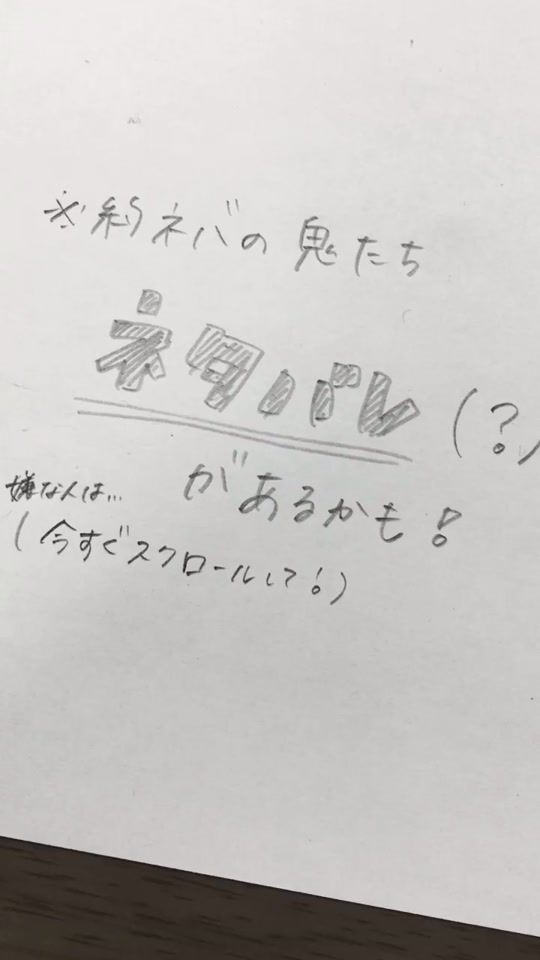 ※約ネバの鬼たち
ネタバレ(?)
があるかも!
嫌な人は...
(今すぐスクロールして!)